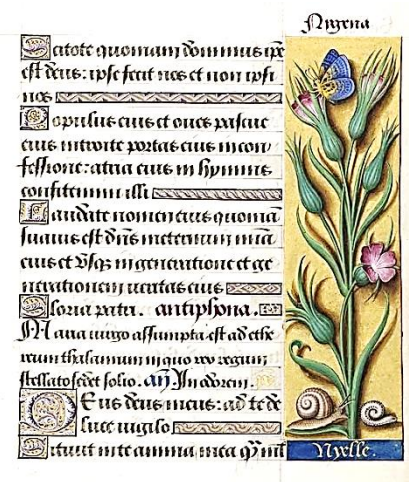 Nigena
Scitote quoniam dominus ipe
est deus: ipse fecit nos et non ipsi
nos
Populus eius et oues pascue
eius introite portas eius in con
fessione: atria eius in hymnis
confitemini illi
Laudate nomen eius quoniã
suauis est dñs in eternum mia
eius et vsq in generatione et ge
nerationem ueritas eius
Gloria patri. antiphona.
Maria uirgo assumpta est ad ethe
reum thalamum in quo rex regum
stellato sedet solio. añ. In odorem.
Deus deus meus: ad te de
luce uigilo
Sitiuit in te anima mea
Nyelle.